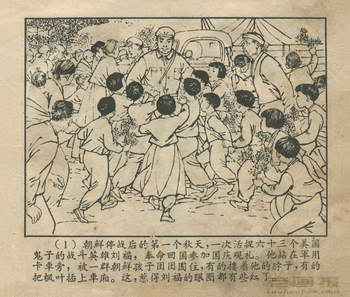 (1)朝鲜停战后的第一个秋天，一次活捉六十三个美国
鬼子的战斗英雄刘福，奉命回国参加国庆观礼。他站在军用
卡车旁，被一群朝鲜孩子团团围住，有的搂着他的脖子，有的
把枫叶插上车厢。这，惹得刘福的眼圈都有些红了。